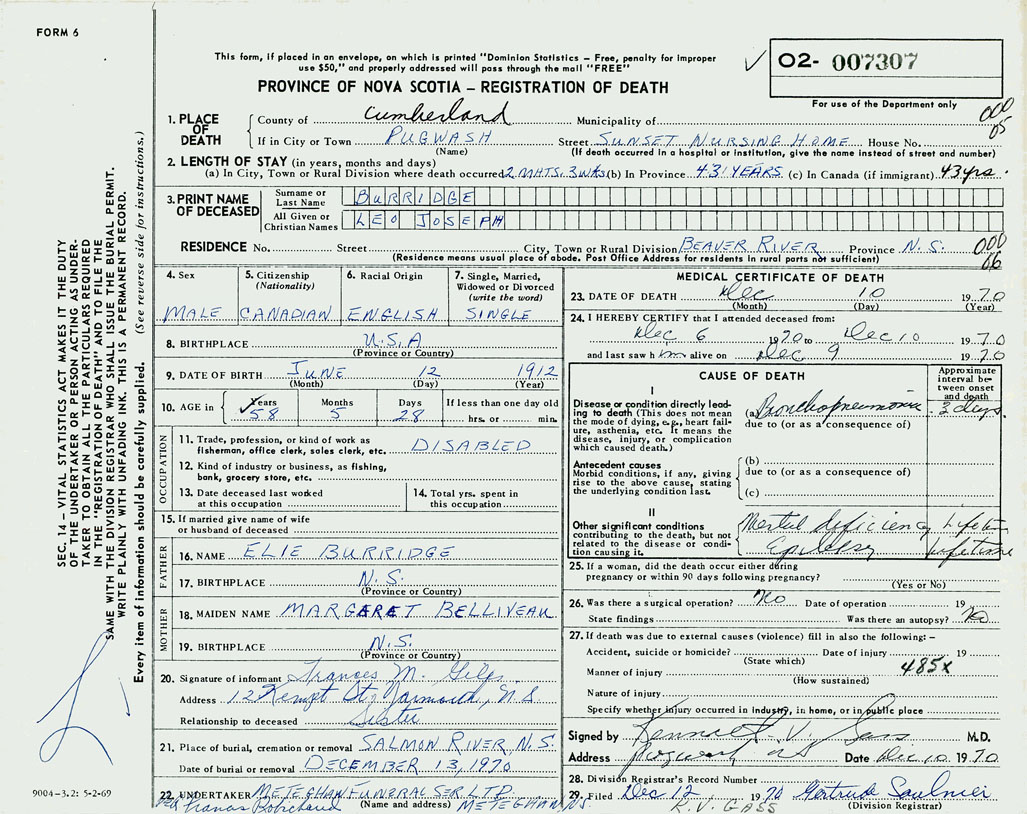 FORM 6
This form, if placed in an envelope, on which is printed "Dominion Statistics – Free, penalty for improper
use $50," and properly addressed will pass through the mail "FREE"
PROVINCE OF NOVA SCOTIA – REGISTRATION OF DEATH
02- 007307
For use of the Department only
1. PLACE OF DEATH
County of Cumberland Municipality of
000
05
If in City or Town PUGWASH Street SUNSET NURSING HOME House No.
(Name) (If death occurred in a hospital or institution, give the name instead of street and number)
2. LENGTH OF STAY (in years, months and days)
(a) In City, Town or Rural Division where death occurred 2 MHTS. 3 WKS (b) In Province 43 YEARS (c) In Canada (if immigrant) 43 yrs.
3. PRINT NAME OF DECEASED
Surname or Last Name BURRIDGE
All Given or Christian Names LEO JOSEPH
RESIDENCE No. Street City, Town or Rural Division BEAVER RIVER Province N.S.
(Residence means usual place of abode. Post Office Address for residents in rural parts not sufficient)
000
06
4. Sex
MALE
5. Citizenship (Nationality)
CANADIAN
6. Racial Origin
ENGLISH
7. Single, Married, Widowed or Divorced (write the word)
SINGLE
8. BIRTHPLACE U.S.A
(Province or Country)
9. DATE OF BIRTH JUNE 12 1912
(Month) (Day) (Year)
10. AGE in Years 58 Months 5 Days 28 If less than one day old hrs. or min.
OCCUPATION
11. Trade, profession, or kind of work as fisherman, office clerk, sales clerk, etc. DISABLED
12. Kind of industry or business, as fishing, bank, grocery store, etc.
13. Date deceased last worked at this occupation
14. Total yrs. spent in this occupation
15. If married give name of wife or husband of deceased
FATHER
16. NAME ELIE BURRIDGE
17. BIRTHPLACE N.S.
(Province or Country)
MOTHER
18. MAIDEN NAME MARGARET BELLIVEAU
19. BIRTHPLACE N.S.
(Province or Country)
20. Signature of informant Frances M.
Address 12 Kempt St. Yarmouth, N.S.
Relationship to deceased Sister
21. Place of burial, cremation or removal SALMON RIVER N.S.
Date of burial or removal DECEMBER 13, 1970
22. UNDERTAKER METEGHAN FUNERAL SER. LTD.
(Name and address) METEGHAN N.S.
Robichaud
MEDICAL CERTIFICATE OF DEATH
23. DATE OF DEATH Dec 10 1970
(Month) (Day) (Year)
24. I HEREBY CERTIFY that I attended deceased from:
Dec 6 1970 to Dec 10 1970
and last saw him alive on Dec 9 1970
CAUSE OF DEATH
Approximate interval between onset and death
I
Disease or condition directly leading to death (This does not mean the mode of dying, e.g., heart failure, asthenia, etc. It means the disease, injury, or complication which caused death.)
(a) Bronchopneumonia 3 days
due to (or as a consequence of)
Antecedent causes
Morbid conditions, if any, giving rise to the above cause, stating the underlying condition last.
(b)
due to (or as a consequence of)
(c)
II
Other significant conditions contributing to the death, but not related to the disease or condition causing it.
Mental deficiency Lifetime
Epilepsy Lifetime
25. If a woman, did the death occur either during pregnancy or within 90 days following pregnancy?
(Yes or No)
26. Was there a surgical operation? No Date of operation 19
State findings Was there an autopsy? No
27. If death was due to external causes (violence) fill in also the following: –
Accident, suicide or homicide? Date of injury 19
(State which)
Manner of injury 485X
(How sustained)
Nature of injury
Specify whether injury occurred in industry, in home, or in public place
Signed by Kenneth V. Gass M.D.
Address Pugwash NS Date Dec 10 1970
28. Division Registrar's Record Number
29. Filed Dec 12 1970 Gertrude Saulnier
(Division Registrar)
K.V. GASS
SEC. 14 – VITAL STATISTICS ACT MAKES IT THE DUTY
OF THE UNDERTAKER OR PERSON ACTING AS UNDER-
TAKER TO OBTAIN ALL THE PARTICULARS REQUIRED
IN THE "REGISTRATION OF DEATH" AND TO FILE THE
SAME WITH THE DIVISION REGISTRAR WHO SHALL ISSUE THE BURIAL PERMIT.
WRITE PLAINLY WITH UNFADING INK. THIS IS A PERMANENT RECORD.
Every item of information should be carefully supplied. (See reverse side for instructions.)
9004-3.2: 5-2-69